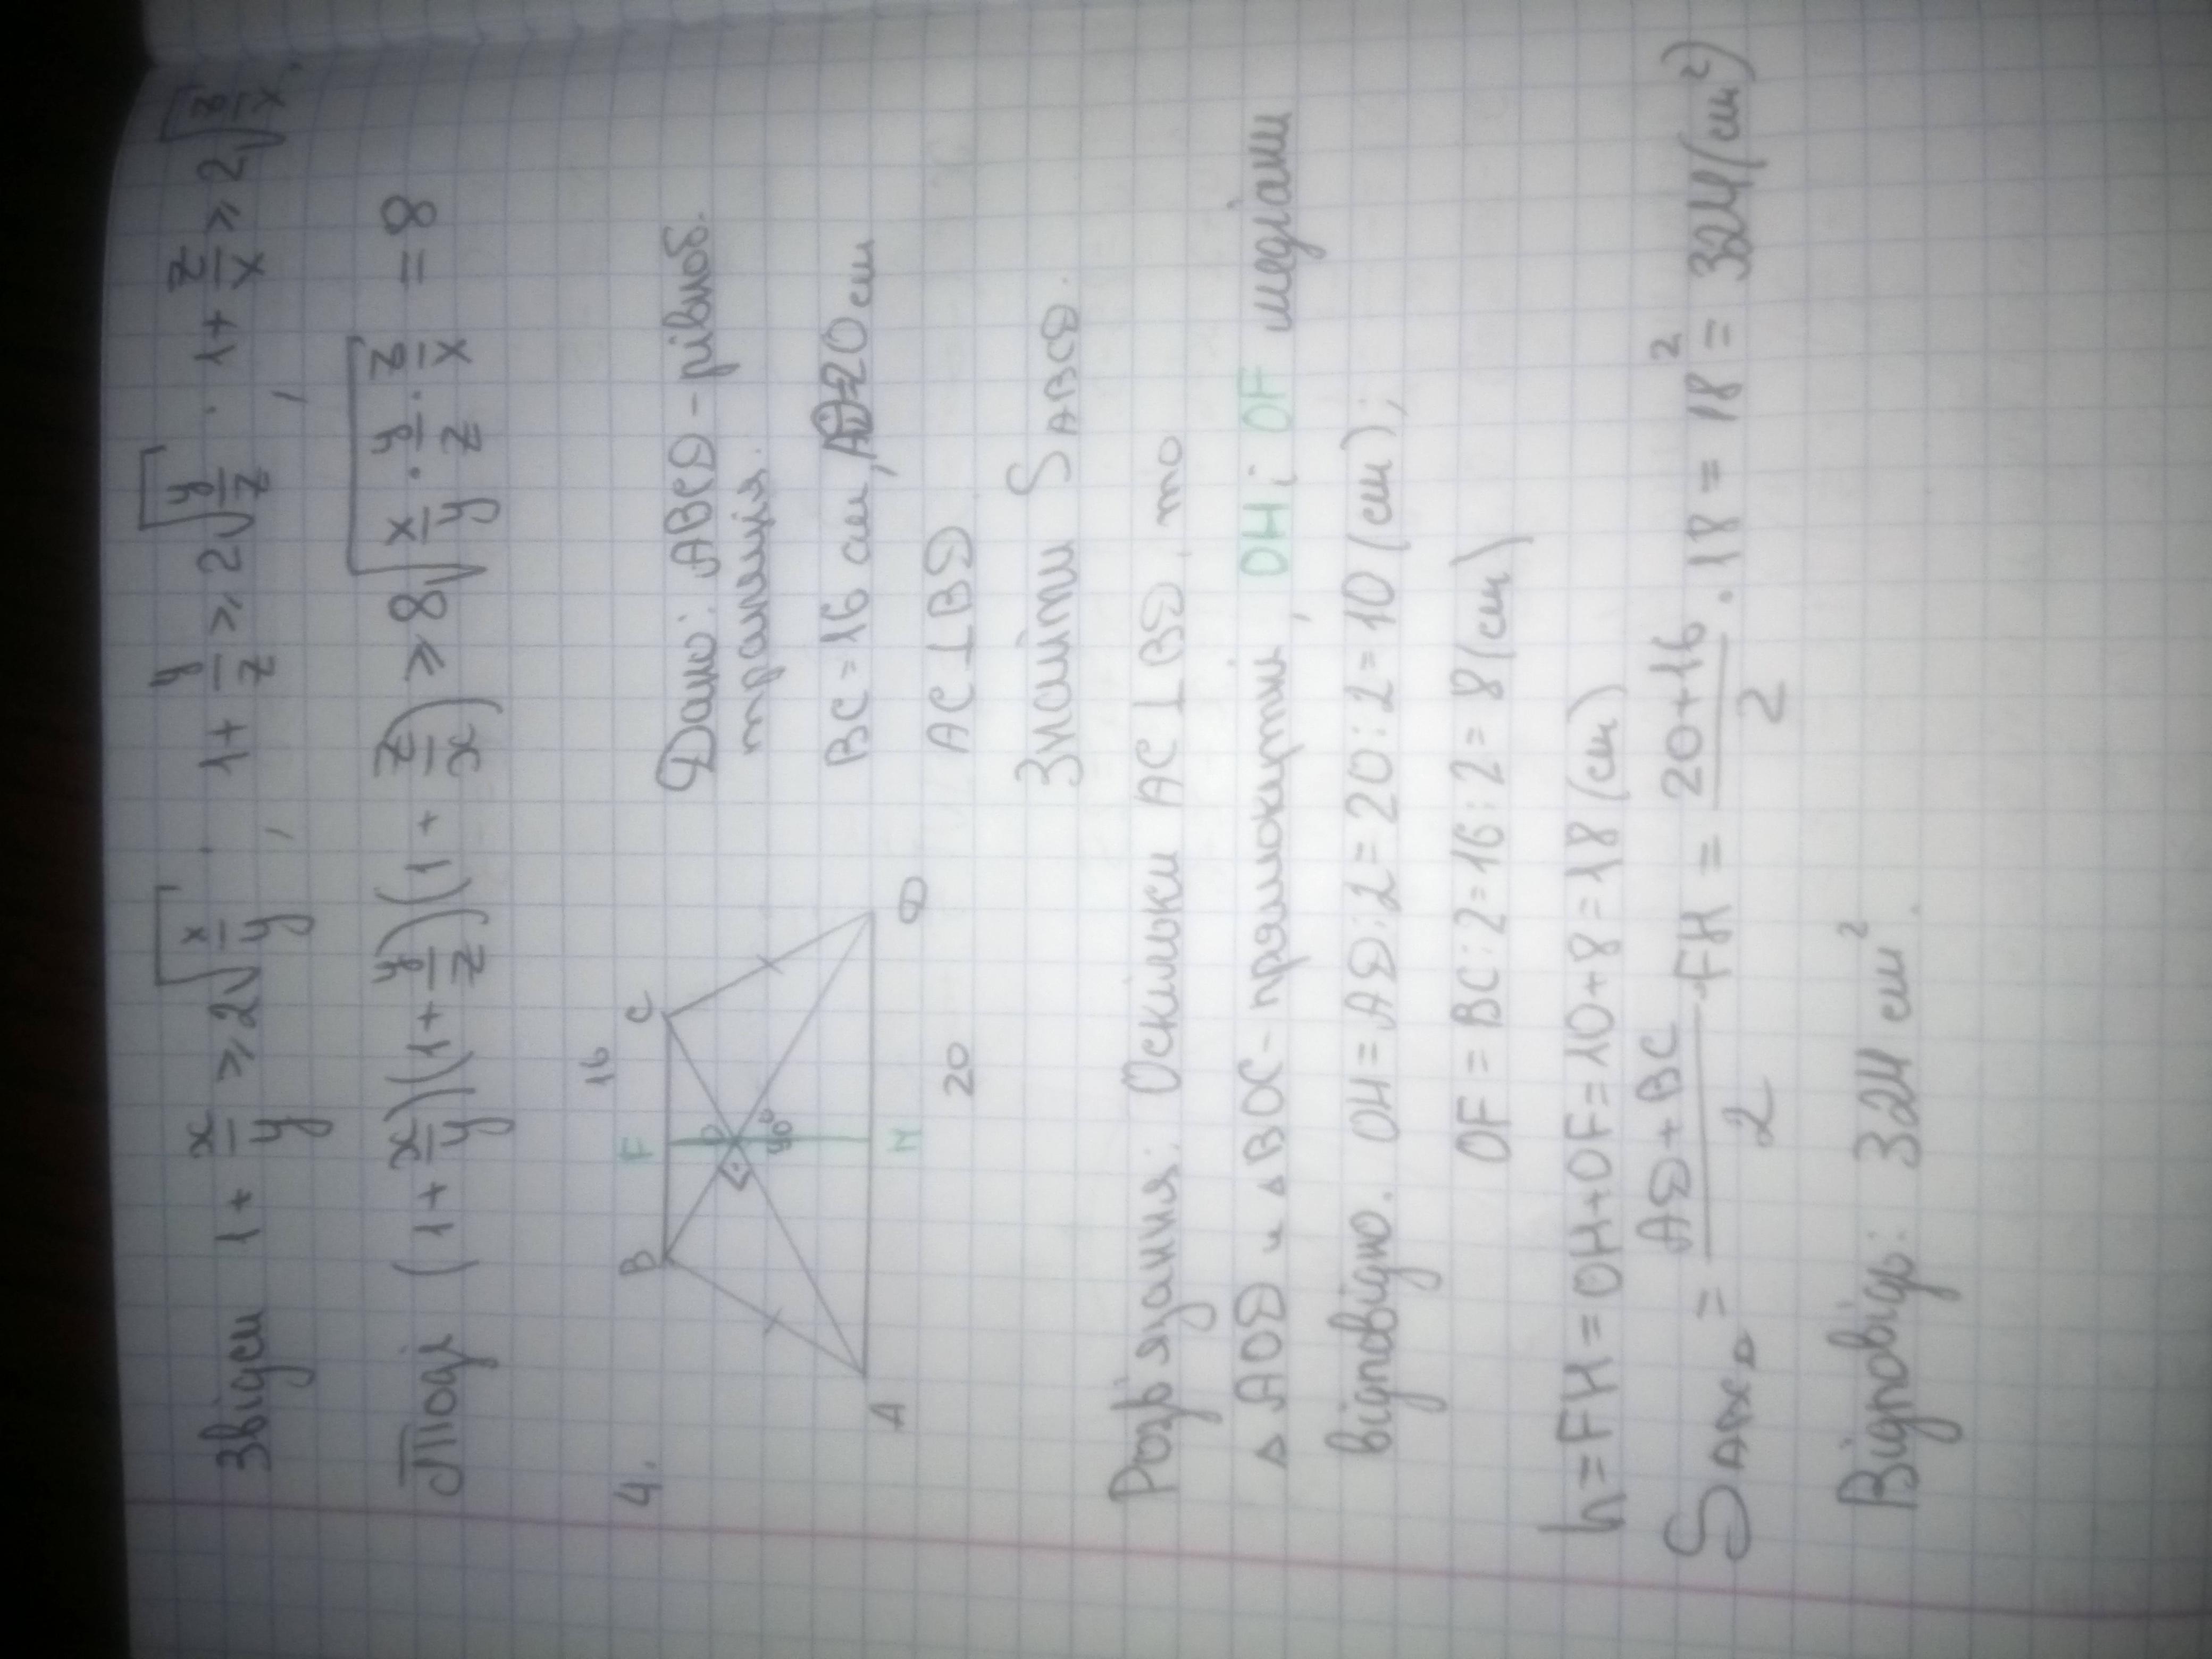 Звідси 1 + x/y ≥ 2√(x/y), 1 + y/z ≥ 2√(y/z), 1 + z/x ≥ 2√(z/x),
Тоді (1 + x/y)(1 + y/z)(1 + z/x) ≥ 8√(x/y · y/z · z/x) = 8
4.
16
B F C
O
90°
A H D
20
Дано: ABCD - рівноб.
трапеція.
BC = 16 см, AD=20 см
AC ⊥ BD
Знайти S ABCD.
Розв'язання: Оскільки AC ⊥ BD, то
△ AOD и △ BOC - прямокутні, OH і OF медіани
відповідно. OH = AD : 2 = 20 : 2 = 10 (см);
OF = BC : 2 = 16 : 2 = 8 (см)
h = FH = OH + OF = 10 + 8 = 18 (см)
S ABCD = (AD + BC)/2 · FH = (20 + 16)/2 · 18 = 18² = 324 (см²)
Відповідь: 324 см².